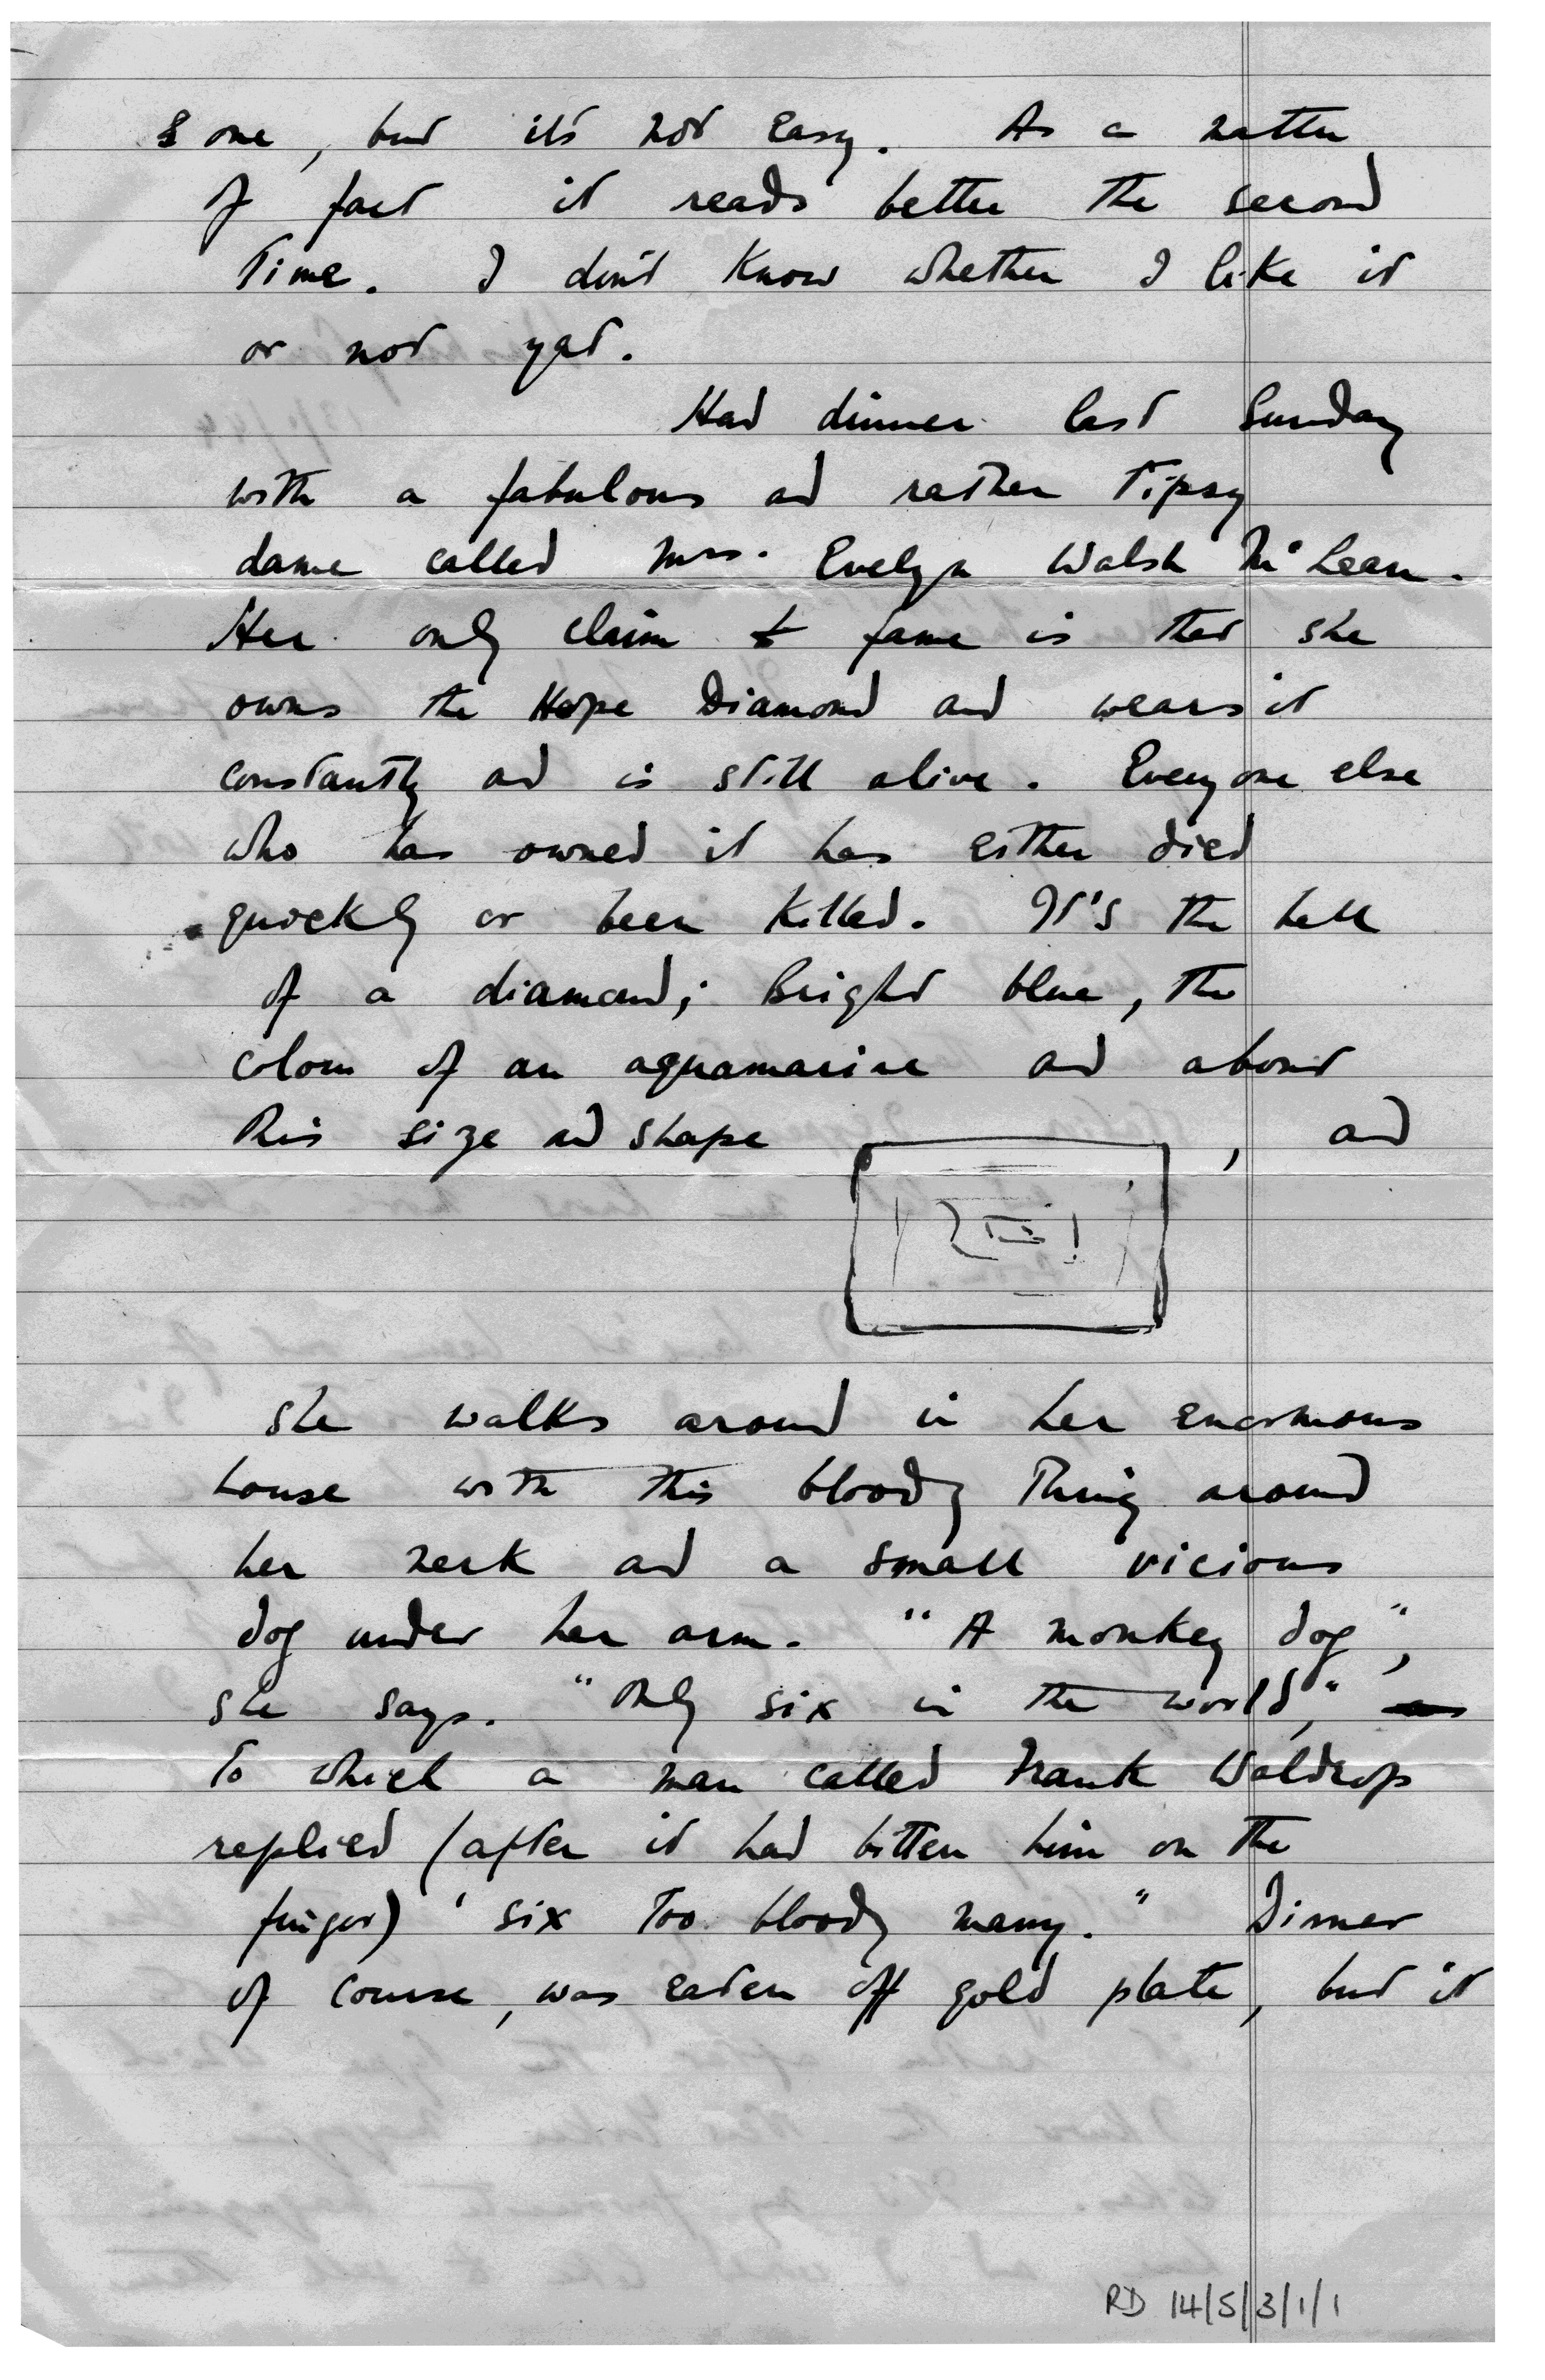 & one, but it's not easy. As a matter
of fact it reads better the second
time. I don't know whether I like it
or not yet.
Had dinner last Sunday
with a fabulous and rather tipsy
dame called Mrs. Evelyn Walsh McLean.
Her only claim to fame is that she
owns the Hope Diamond and wears it
constantly and is still alive. Everyone else
who has owned it has either died
quickly or been killed. It's the hell
of a diamond; Bright blue, the
colour of an aquamarine and about
this size and shape , and
she walks around in her enormous
house with this bloody thing around
her neck and a small vicious
dog under her arm. "A monkey dog",
she says. "Only six in the world,"
to which a man called Frank Waldrop
replied (after it had bitten him on the
finger) 'six too bloody many." Dinner
of course, was eaten off gold plate, but it
RD 14/5/3/1/1